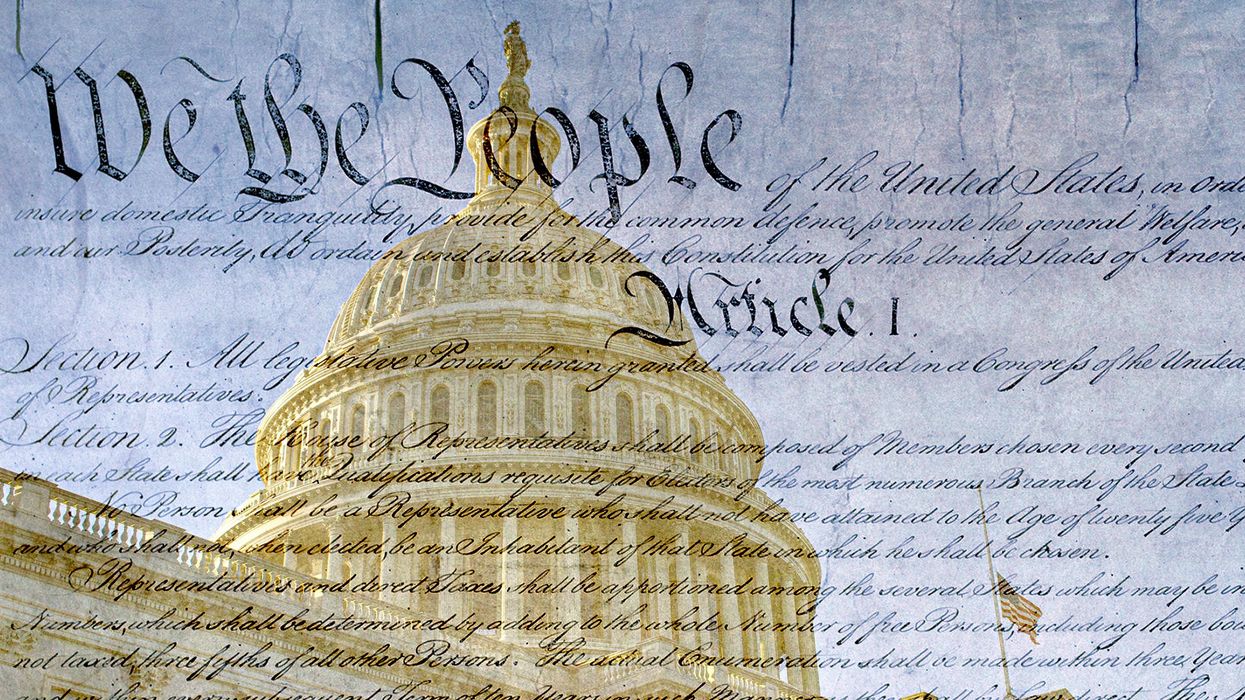 We the People of the United States, in Orde
insure domestic Tranquility, provide for the common defence, promote the general Welfare,
and our Posterity, do ordain and establish this Constitution for the United States of Americ
Article. I.
Section. 1. All legislative Powers herein granted shall be vested in a Congress of the United
of Representatives.
Section. 2. The House of Representatives shall be composed of Members chosen every second
in each State shall have the Qualifications requisite for Electors of the most numerous Branch of the State
No Person shall be a Representative who shall not have attained to the Age of twenty five Y
and who shall not, when elected, be an Inhabitant of that State in which he shall be chosen.
Representatives and dered Taxes shall be apportioned among the several States which may be in
Numbers, which shall be determined by adding to the whole Number of free Persons, including those bou
not taxed, three fifths of all other Persons. The actual Enumeration shall be made within three Year
and within every subsequent Term of ten Years, in such Manner as they shall by Law direct. The